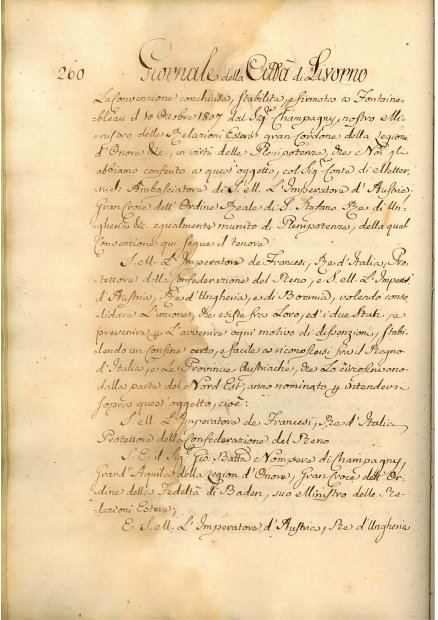 260 Giornale della Città di Livorno
La Convenzione conchiusa, stabilita, e firmata a Fontaine-
bleau il 10 Ottobre 1807 dal Sig.r Champagny, nostro Mi-
nistro delle Relazioni Estere, gran Cordone della Legione
d'Onore &c., in virtù della Plenipotenza, che Noi gli
abbiamo conferito a quest'oggetto, col Sig.r Conte di Metter-
nich Ambasciatore di S. M. L'Imperatore d'Austria,
Gran Croce dell'Ordine Reale di S. Stefano Re di Un-
gheria &c. equalmente munito di Plenipotenza, della qual
Convenzione qui segue il tenore
S. M. L'Imperatore de Francesi, Re d'Italia, Pro-
tettore della Confederazione del Reno, e S. M. L'Imperat.
d'Austria, Re d'Ungheria, e di Boemia, volendo conso-
lidare L'unione, che esiste fra Loro, ed i due Stati, e
prevenire p L'avvenire ogni motivo di dissenzioni, stabi-
lendo un confine certo, e facile a riconoscersi fra il Regno
d'Italia, e Le Provincie Austriache, che Lo circoscrivono
dalla parte del Nord Est, anno nominato p intendersi
sopra quest'oggetto, cioè:
S. M. L'Imperatore de Francesi, Re d'Italia
Protettore della Confederazione del Reno
S. E. il Sig.r Gio. Batta Nompere di Champagny,
Grand'Aquila della Legion d'Onore, Gran Croce dell'Or-
dine della Fedeltà di Baden, suo Ministro delle Re-
lazioni Estere;
E S. M. L'Imperatore d'Austria, Re d'Ungheria